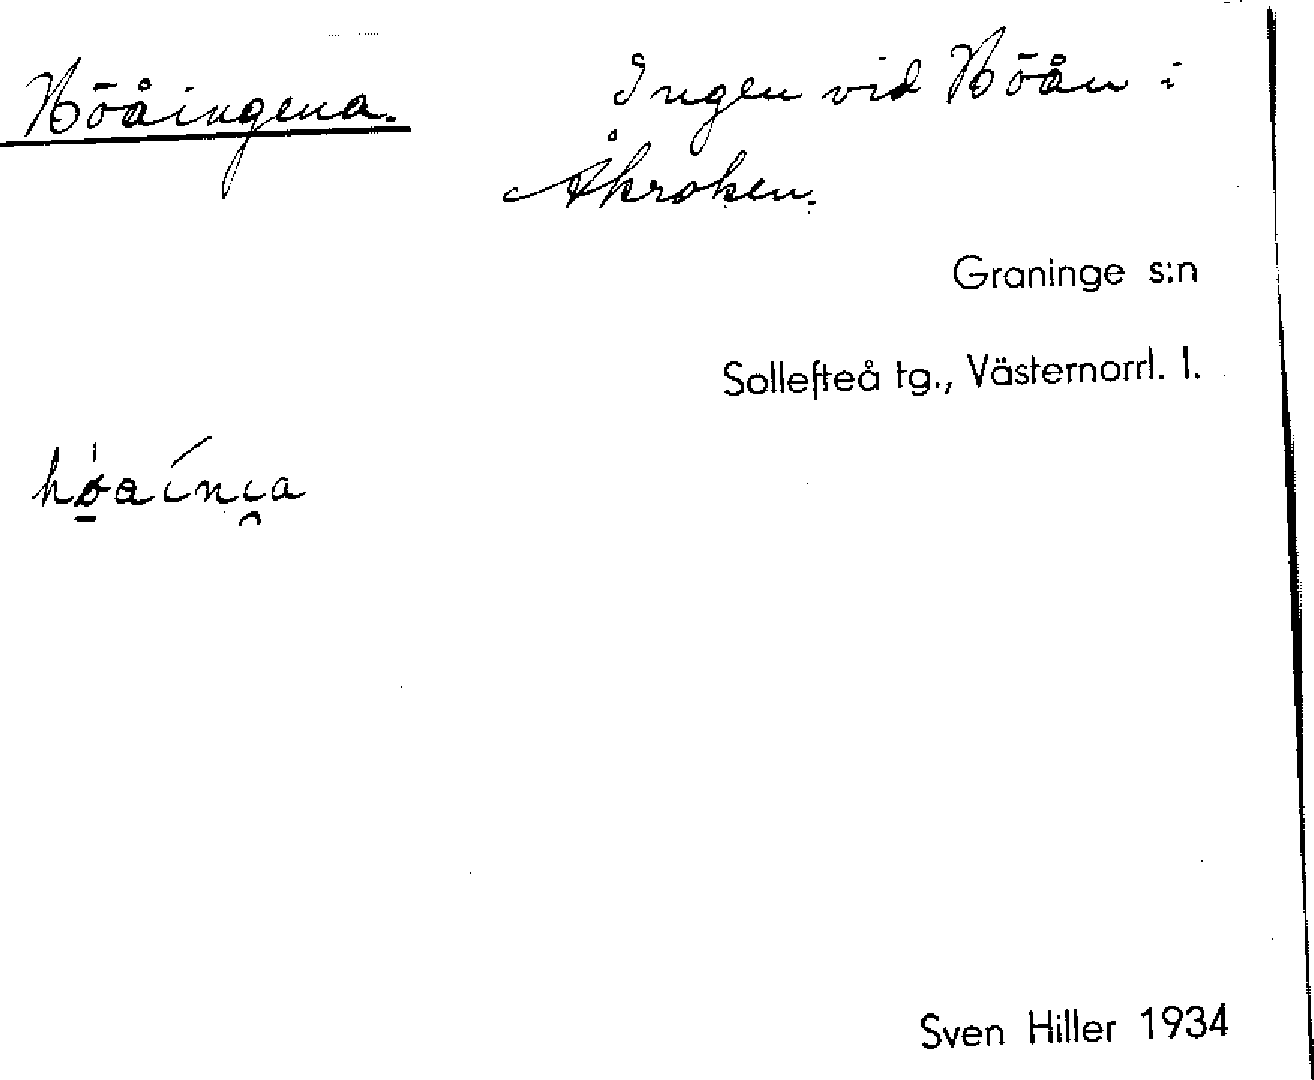 Höåingena. Ingen vid Höån i
Åkroken.
Graninge s:n
Sollefteå tg., Västernorrl. l.
Sven Hiller 1934